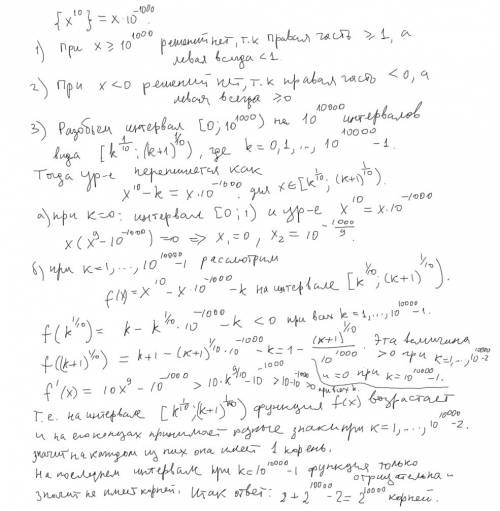 {x^10} = x·10^-1000.
1) При x ≥ 10^1000 решений нет, т.к правая часть ≥ 1, а
левая всегда < 1.
2) При x < 0 решений нет, т.к правая часть < 0, а
левая всегда ≥ 0
3) Разобьем интервал [0; 10^1000) на 10^10000 интервалов
вида [k^1/10; (k+1)^1/10), где k = 0, 1, ..., 10^10000 - 1.
Тогда ур-е перепишется как
x^10 - k = x·10^-1000 для x∈[k^1/10; (k+1)^1/10).
а) при k=0: интервал [0; 1) и ур-е x^10 = x·10^-1000
x(x^9 - 10^-1000) = 0 => x1 = 0, x2 = 10^-1000/9.
б) при k = 1, ..., 10^10000 - 1 рассмотрим
f(x) = x^10 - x·10^-1000 - k на интервале [k^1/10; (k+1)^1/10).
f(k^1/10) = k - k^1/10·10^-1000 - k < 0 при всех k = 1, ..., 10^10000 - 1.
f((k+1)^1/10) = k+1 - (k+1)^1/10·10^-1000 - k = 1 - (k+1)^1/10 / 10^1000. Эта величина > 0 при k=1,..,10^10000 - 2 и = 0 при k = 10^10000 - 1.
f'(x) = 10x^9 - 10^-1000 > 10·k^9/10 - 10^-1000 > 10 - 10^-1000 > 0 при всех k.
Т.е. на интервале [k^1/10; (k+1)^1/10) функция f(x) возрастает
и на его концах принимает разные знаки при k = 1, ..., 10^10000 - 2.
значит на каждом из них она имеет 1 корень.
На последнем интервале при k = 10^10000 - 1 функция только
отрицательна -
значит не имеет корней. Итак ответ: 2 + 2^10000 - 2 = 2^10000 корней.